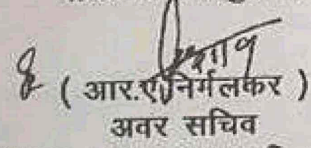 ( आर.ए.निर्मलकर )
अवर सचिव